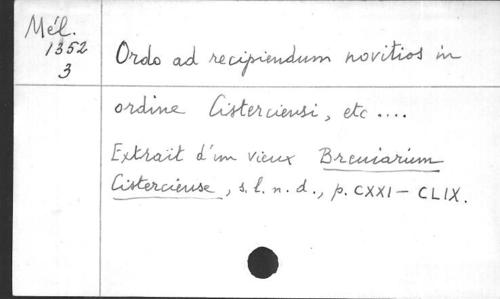 Mél.
1352
3
Ordo ad recipiendum novitios in
ordine Cisterciensi, etc ....
Extrait d'un vieux Breviarium
Cisterciense, s.l.n.d., p. CXXI - CLIX.